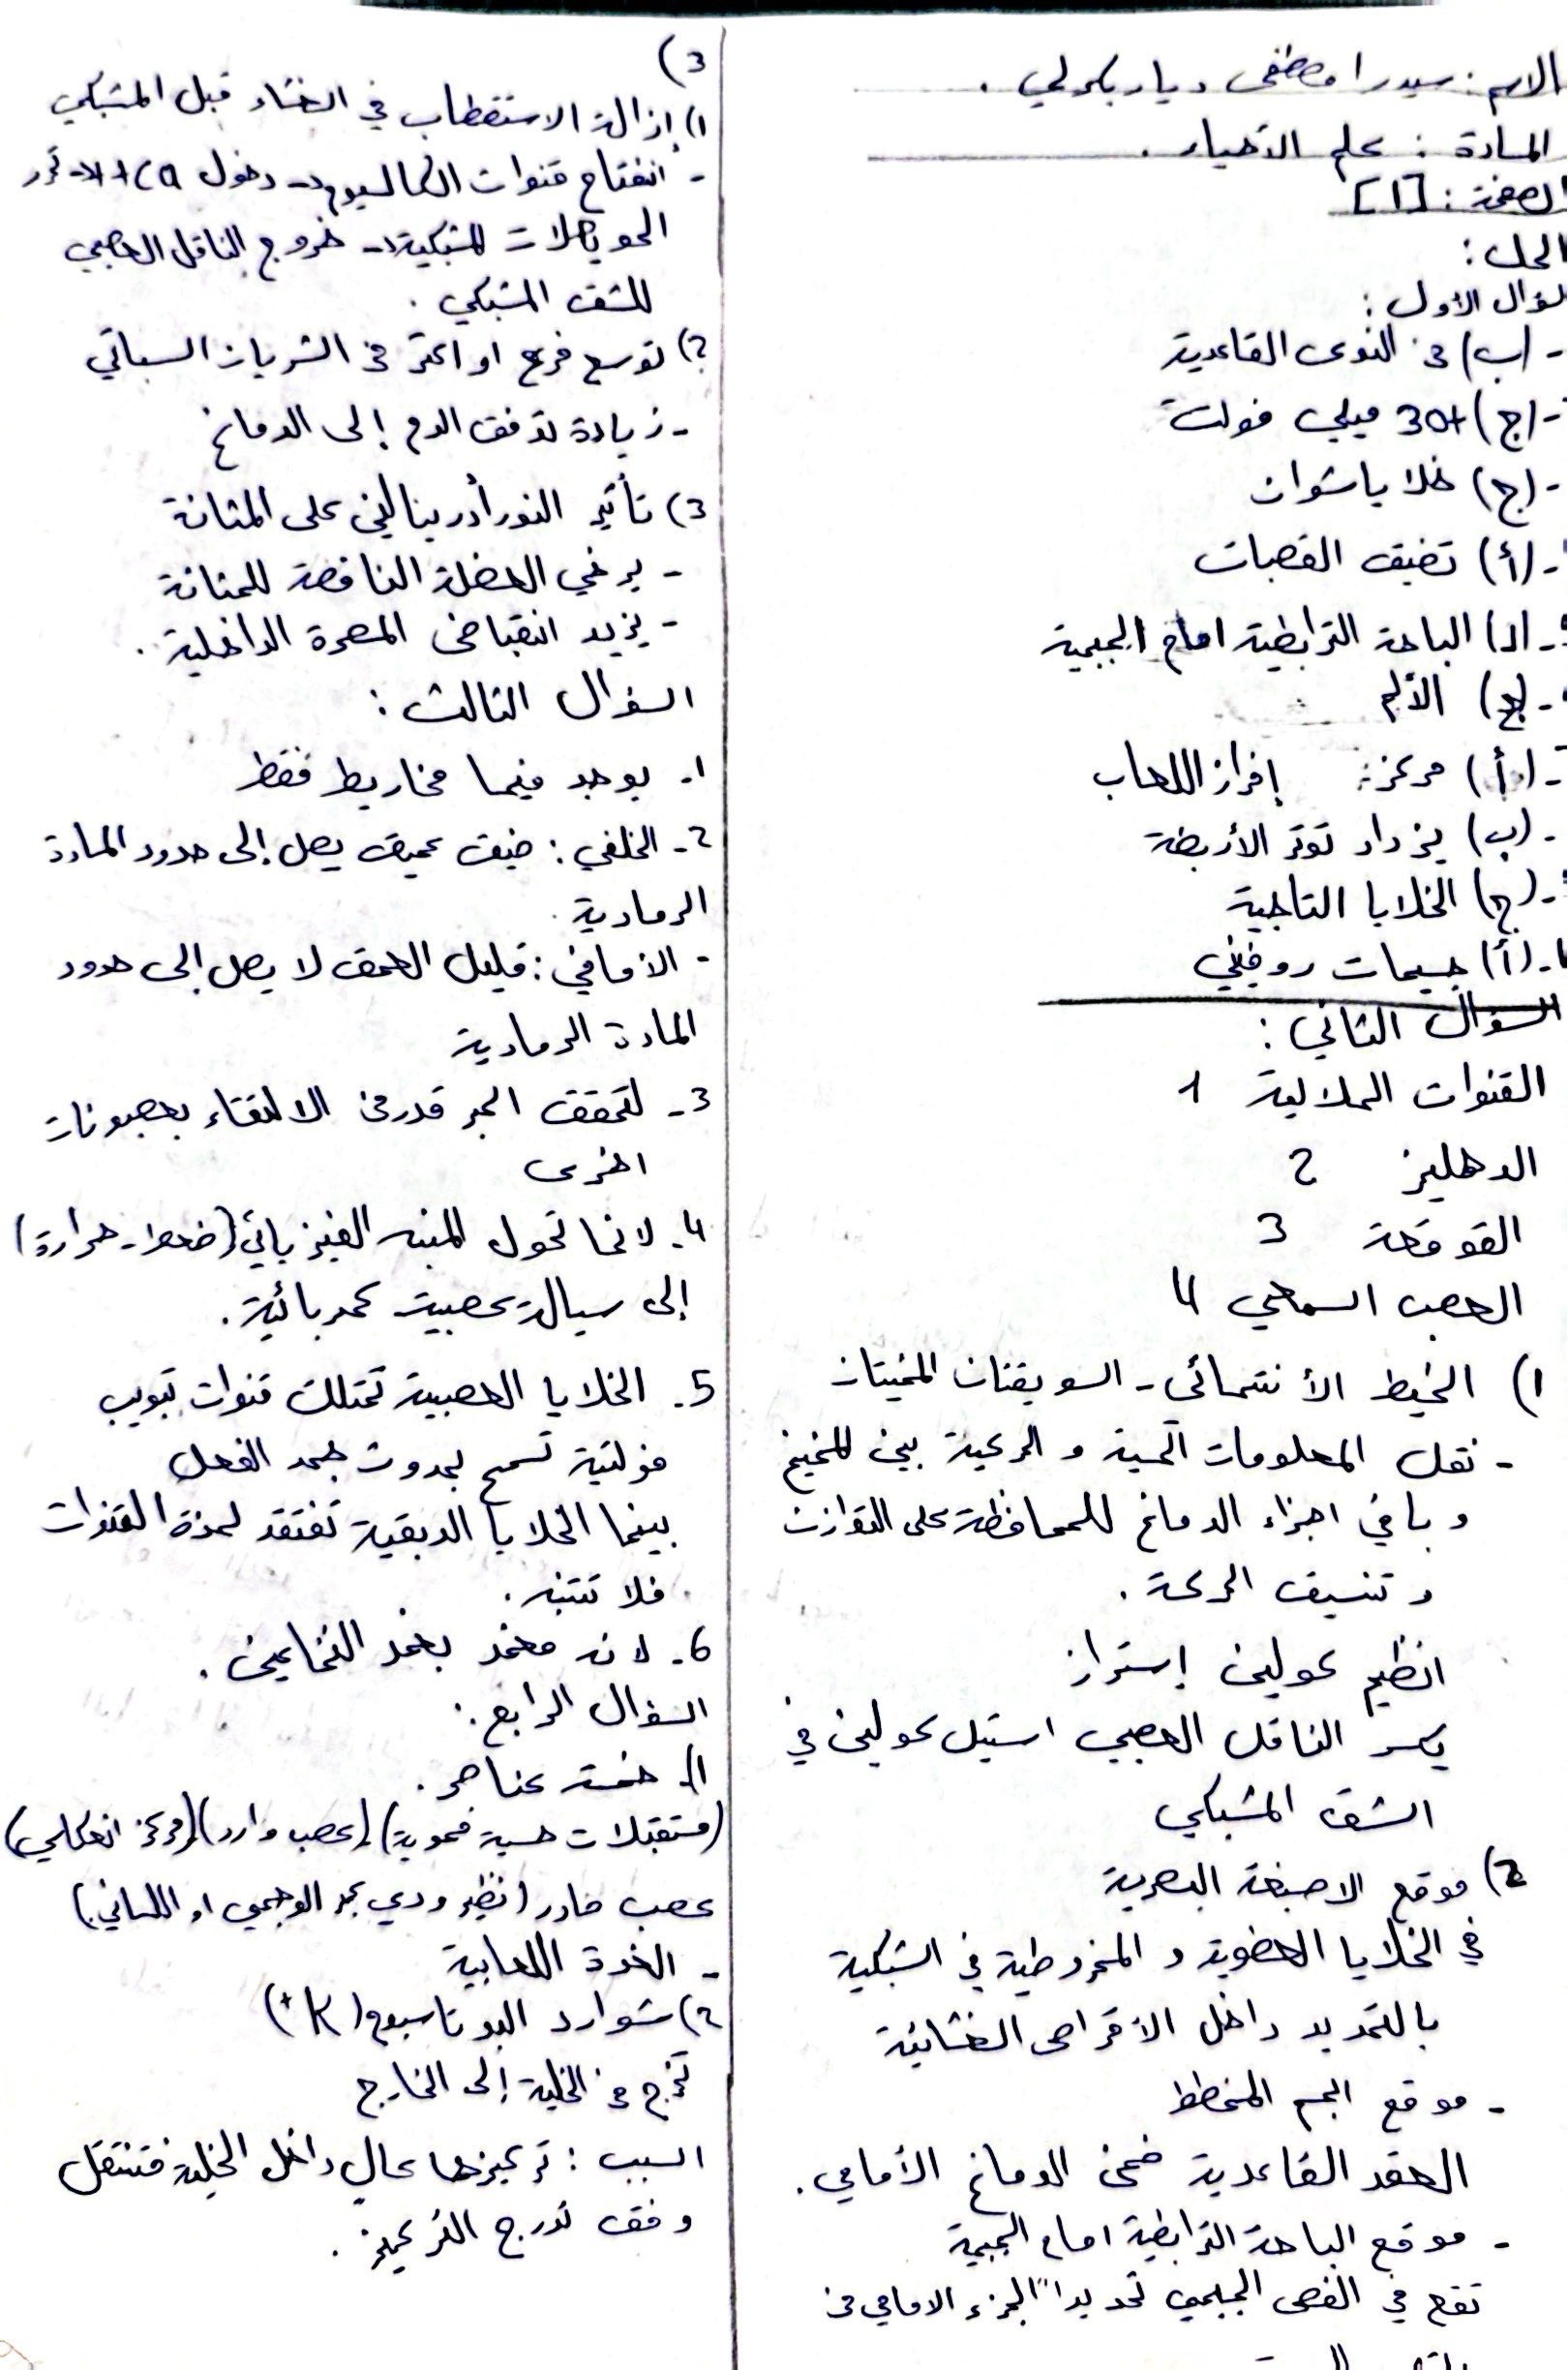 الاسم: سيدرا مصطفى ديار بكرلي.
المادة: علم الأحياء.
الصفحة: [1]
الحل:
السؤال الأول:
- (ب) من النوى القاعدية
- (ج) +30 ميلي فولت
- (ج) خلايا شوان
- (أ) تضيق القصبات
- (د) الباحة الترابطية امام الجبهية
- (ج) الألم
- (أ) مركز: إفراز اللعاب
- (ب) يزداد توتر الأربطة
- (ج) الخلايا التاجية
- (أ) جسيمات روفيني
السؤال الثاني:
القنوات الهلالية 1
الدهليز 2
القوقعة 3
العصب السمعي 4
1) الخيط الأنتهائي - السويقتان المخيتان
- نقل المعلومات الحسية و الحركية بين المخيخ
و باقي اجزاء الدماغ للمحافظة على التوازن
و تنسيق الحركة.
انظيم كولين إستراز
يكسر الناقل العصبي استيل كولين في
الشق المشبكي
2) موقع الاصبغة البصرية
في الخلايا العضوية و المخروطية في الشبكية
بالتحديد داخل الاقراص الغشائية
- موقع الجسم المخطط
العقد القاعدية ضمن الدماغ الأمامي.
- موقع الباحة الترابطية امام الجبهية
تقع في الفص الجبهي تحديدا" الجزء الامامي من
3)
1) إزالة الاستقطاب في الغشاء قبل المشبكي
- انفتاح قنوات الكالسيوم -> دخول Ca++ -> تحرر
الحويصلات المشبكية -> خروج الناقل العصبي
للشق المشبكي.
2) توسع فرع او اكثر من الشريان السباتي
- زيادة تدفق الدم إلى الدماغ
3) تأثير النورأدرينالين على المثانة
- يرخي العضلة الدافعة للمثانة
- يزيد انقباض المصرة الداخلية.
السؤال الثالث:
1- يوجد فيها مخاريط فقط
2- الخلفي: ضيق عميق يصل إلى حدود المادة
الرمادية.
- الأمامي: قليل العمق لا يصل إلى حدود
المادة الرمادية
3- لتحقق اكبر قدر من الالتقاء بعصبونات
اخرى
4- لانها تحول المنبه الفيزيائي (ضغط - حرارة)
إلى سيالة عصبية كهربائية.
5. الخلايا العصبية تمتلك قنوات تبويب
فولتية تسمح بحدوث جهد الفعل
بينما الخلايا الدبقية تفتقد لهذة القنوات
فلا تتنبه.
6- لانه مغمد بغمد النخاعين.
السؤال الرابع:
1)- خمسة عناصر.
(مستقبلات حسية فموية) (عصب وارد) (مركز انعكاسي)
عصب صادر (نظير ودي عبر الوجهي او اللساني)
- الغدة اللعابية
2) شوارد البوتاسيوم (K+)
تخرج من الخلية إلى الخارج
السبب: تركيزها عالٍ داخل الخلية فتنتقل
وفق تدرج التركيز.